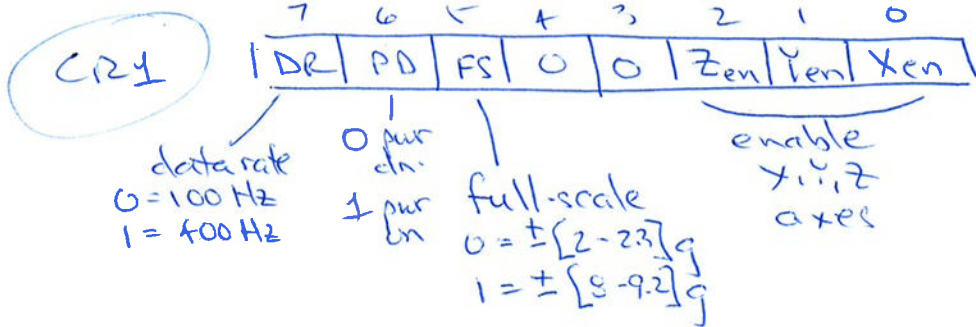 7 6 5 4 3 2 1 0
CR1 | DR | PD | FS | 0 | 0 | Zen | Yen | Xen
data rate
0 = 100 Hz
1 = 400 Hz
0 pwr dn.
1 pwr on
full-scale
0 = ±[2-2.3]g
1 = ±[8-9.2]g
enable
X, Y, Z
axes